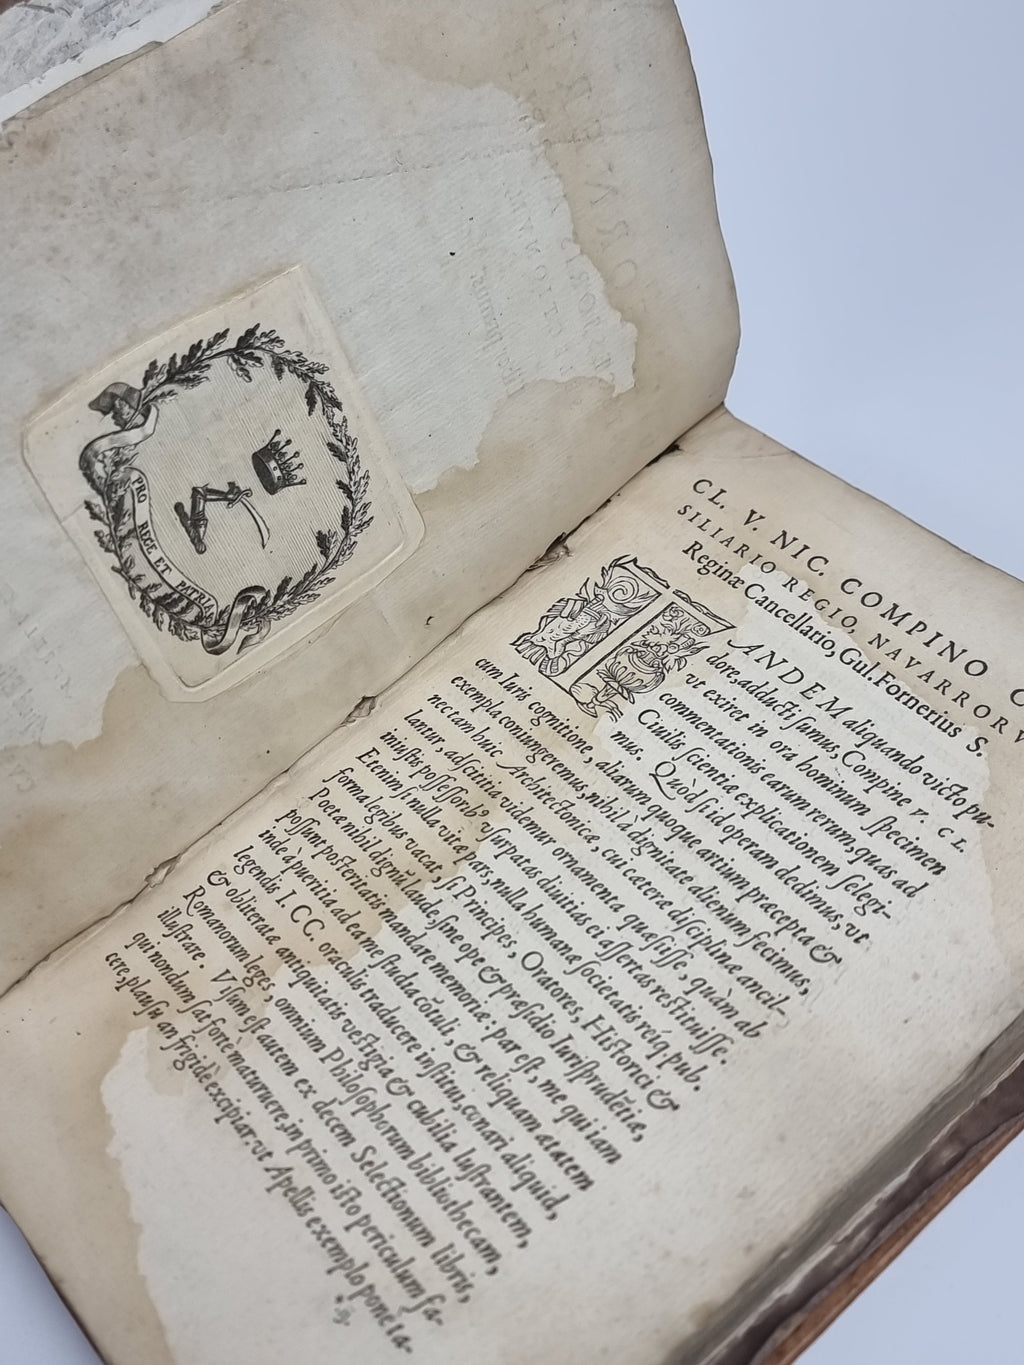 PRO REGE ET PATRIA
CL. V. NIC. COMPINO
SILIARIO REGIO, NAVARRORV
Reginæ Cancellario, Gul. Fornerius S.
TANDEM aliquando victo pu-
dore, adducti sumus, Compine v. CL.
vt exiret in ora hominum specimen
commentationis earum rerum, quas ad
Ciuilis scientiæ explicationem selegi-
mus. Quòd si id operam dedimus, vt
cum Iuris cognitione, aliarum quoque artium præcepta &
exempla coniungeremus, nihil à dignitate alienum fecimus,
nec tam huic Architectonicæ, cui cæteræ disciplinæ ancil-
lantur, adscititia videmur ornamenta quæsisse, quàm ab
iniustis possessorib⁹ vsurpatas diuitias ei assertas restituisse.
Etenim si nulla vitæ pars, nulla humanæ societatis reiq. pub.
forma legibus vacat, si Principes, Oratores, Historici &
Poetæ nihil dignũ laude, sine ope & præsidio Iurisprudẽtiæ,
possunt posteritatis mandare memoriæ: par est, me qui iam
inde à pueritia ad ea me studia cõtuli, & reliquam ætatem
legendis I. CC. oraculis traducere institui, conari aliquid,
& obliteratæ antiquitatis vestigia & cubilia lustrantem,
Romanorum leges, omnium Philosophorum bibliothecam,
illustrare. Visum est autem ex decem Selectionum libris,
qui nondum sat fortè maturuere, in primo isto periculum fa-
cere, plausu an frigidè excipiar: vt Apellis exemplo pone ta-